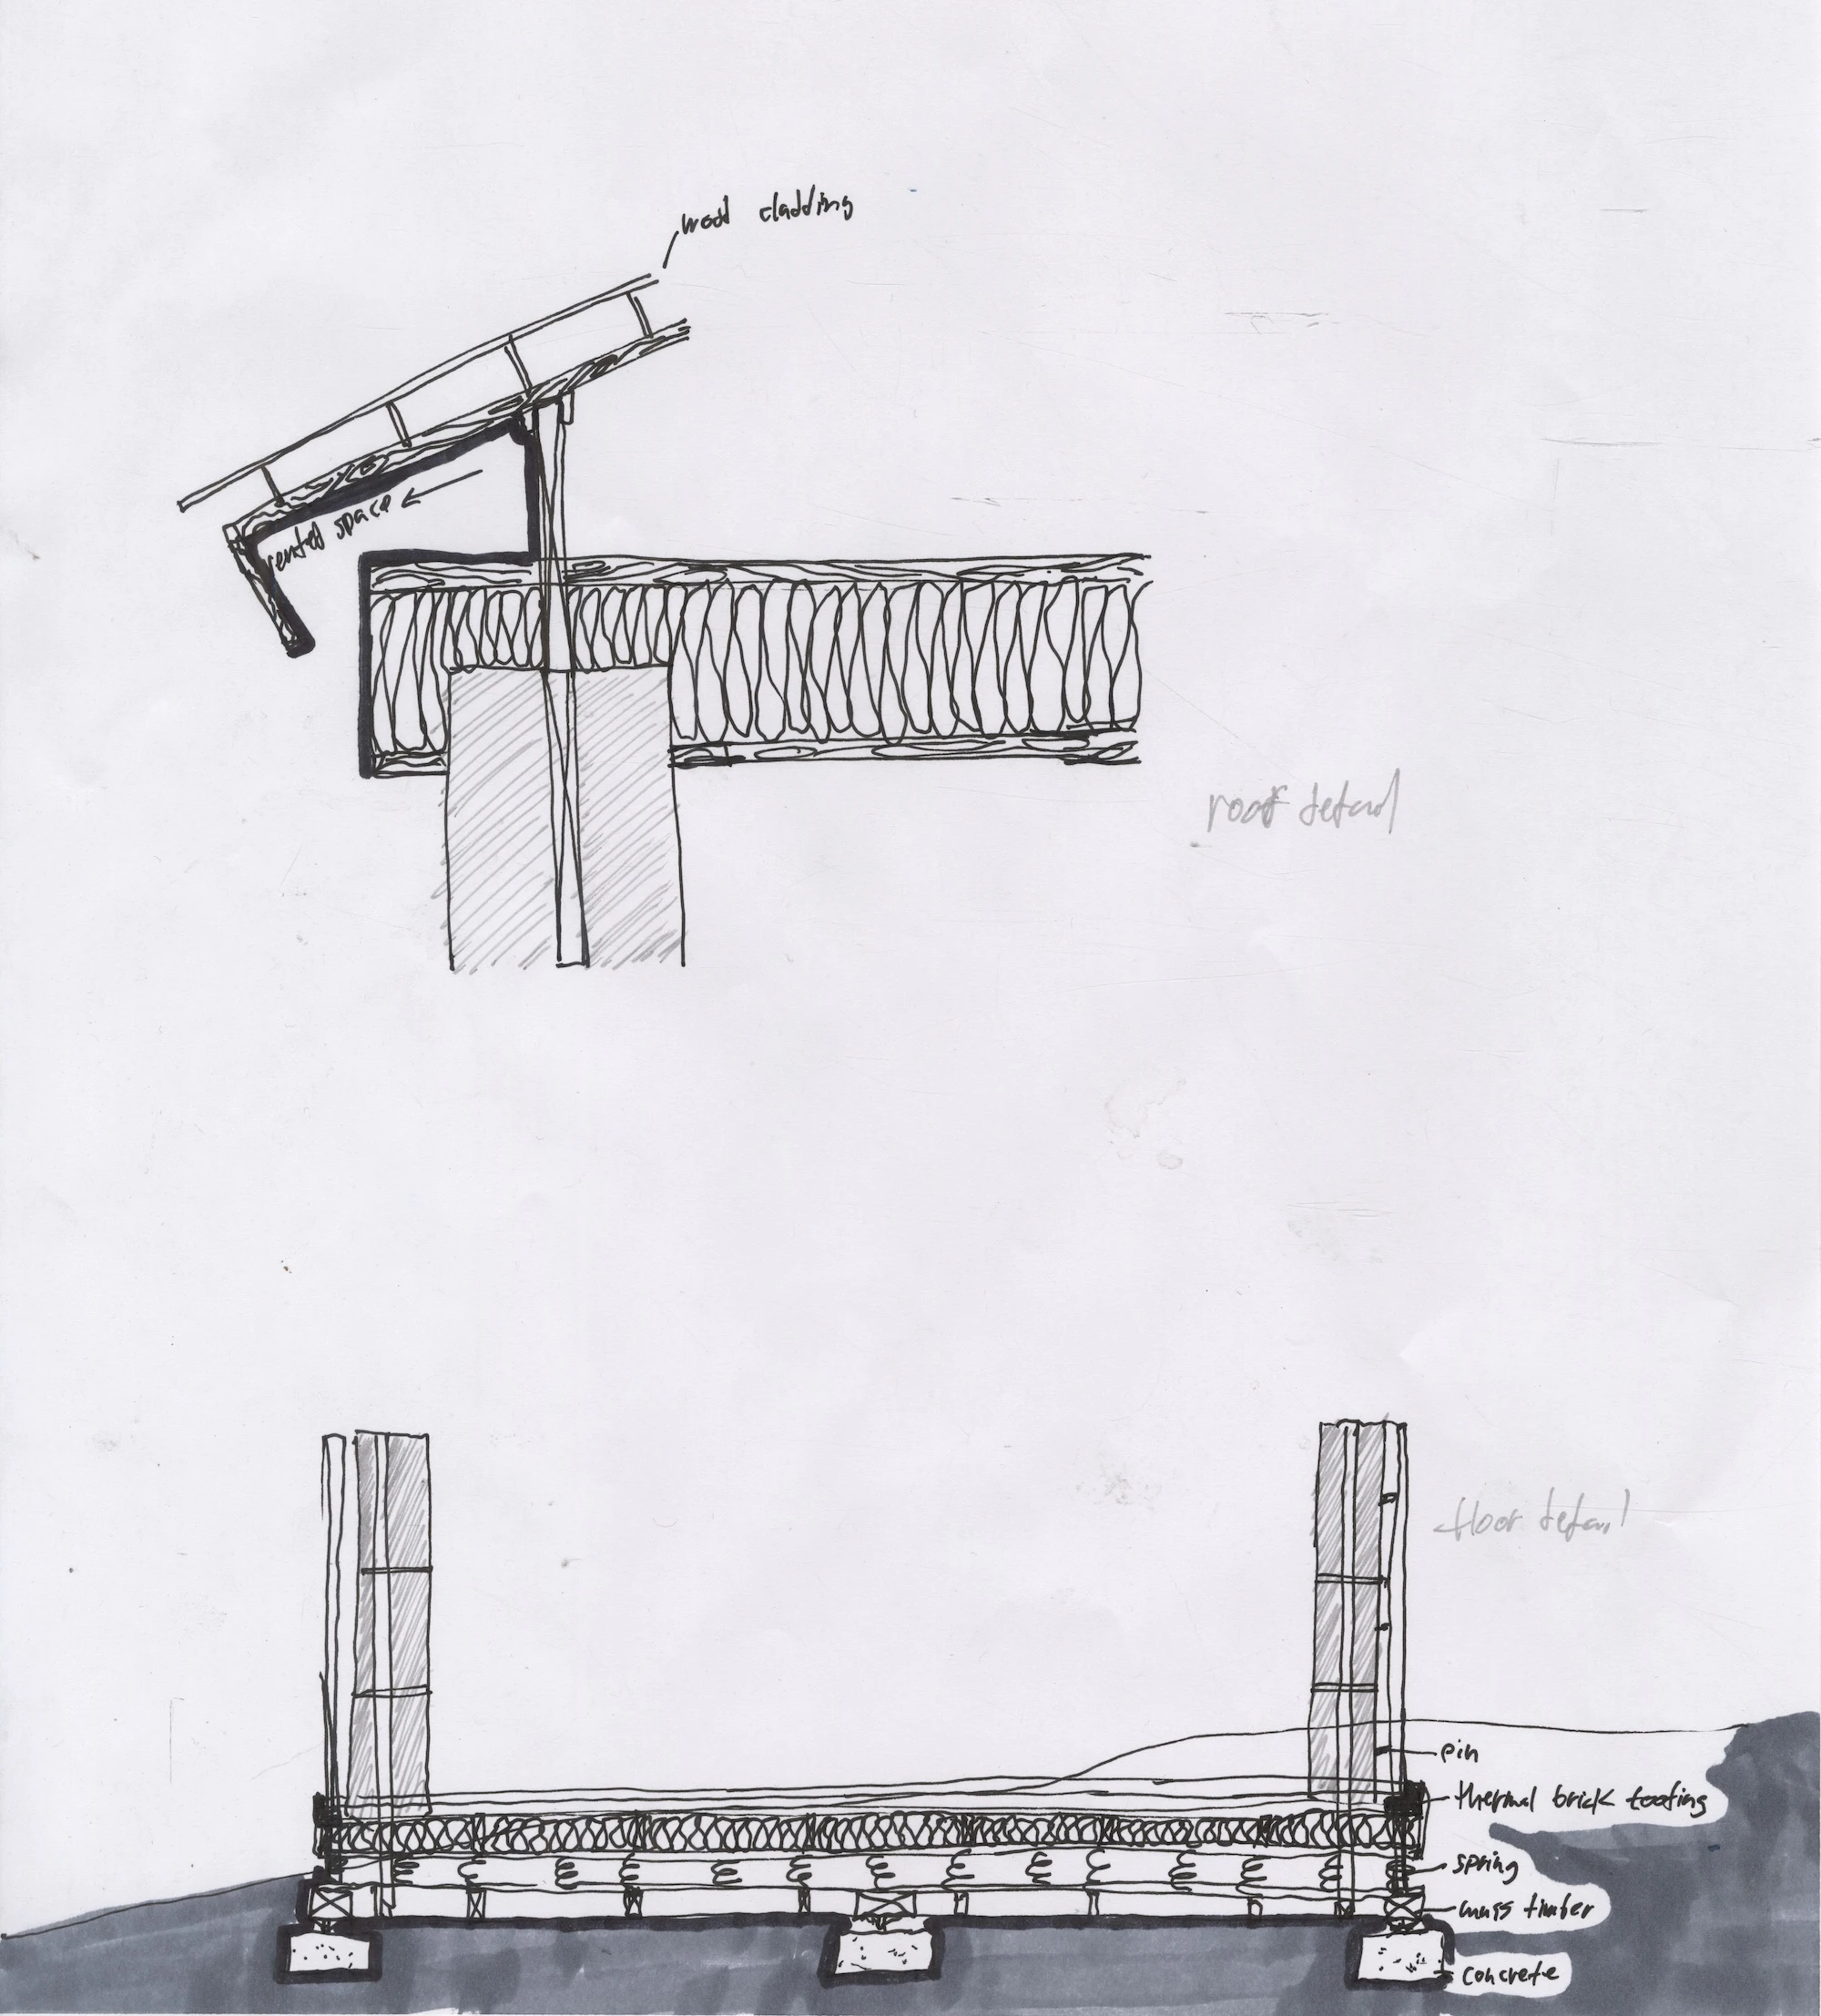 wood cladding
vented space
roof detail
floor detail
pin
thermal brick footing
spring
mass timber
concrete